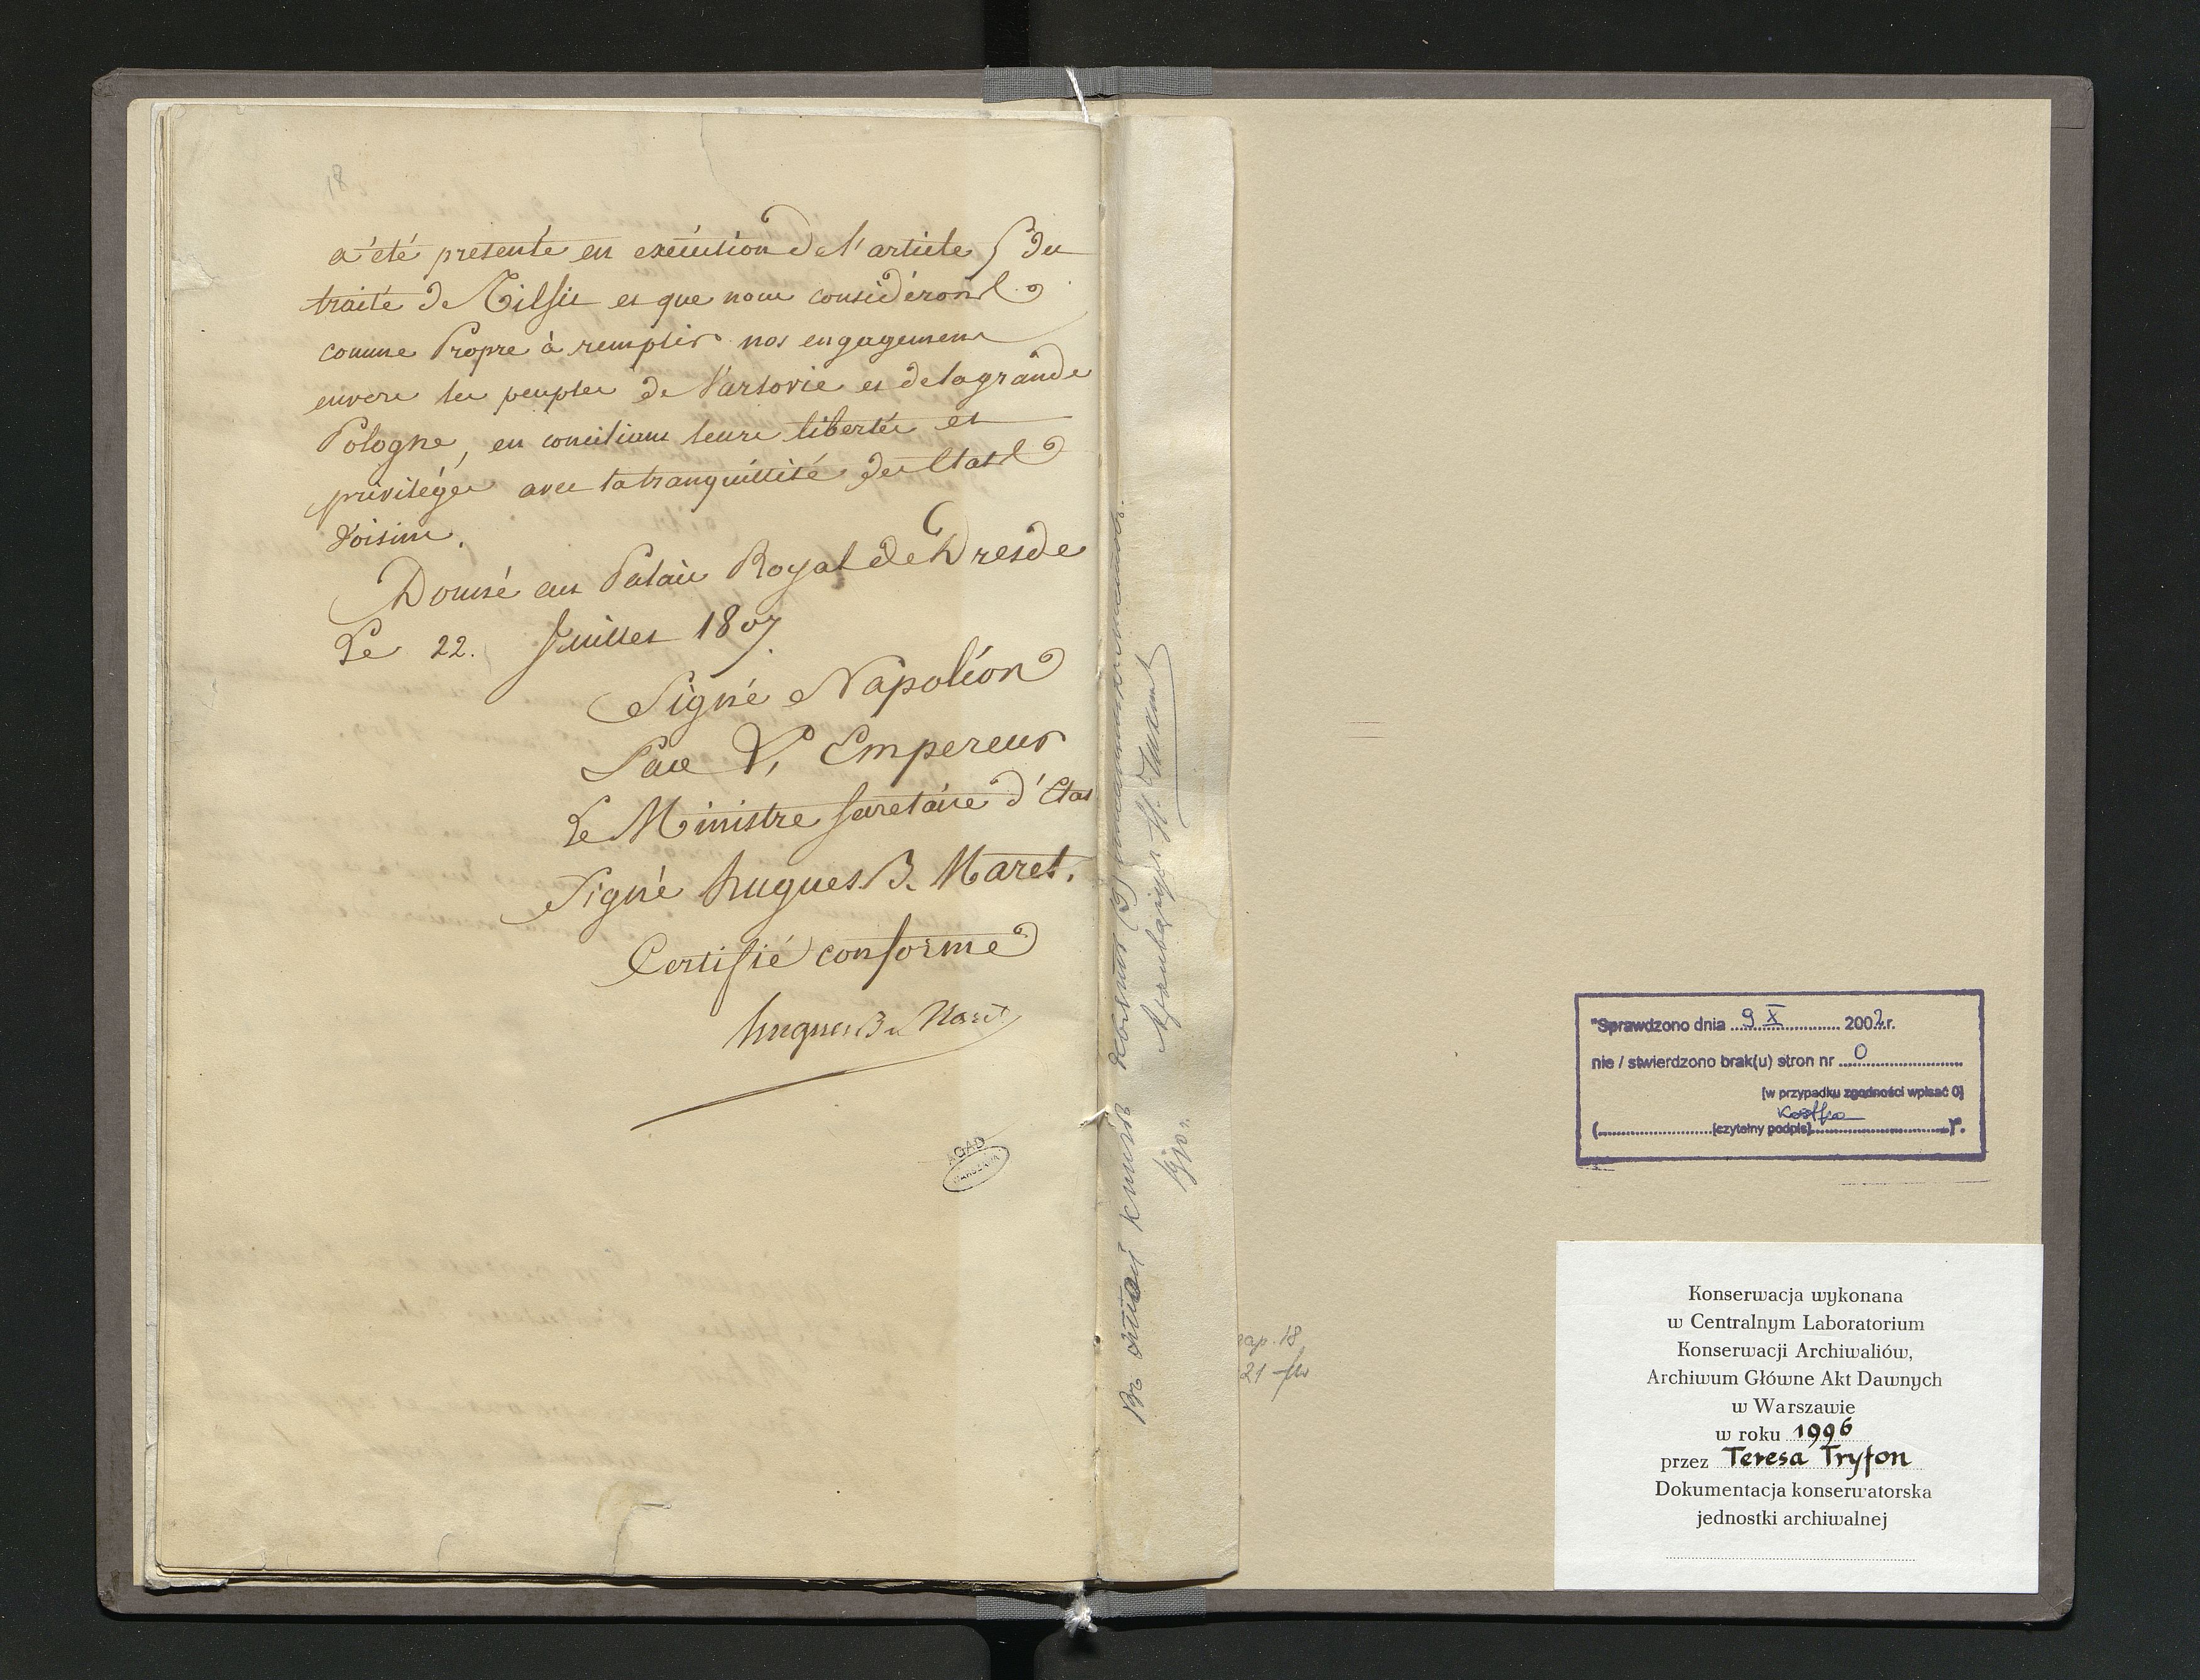 18
a été présenté en exécution de l'article 5 du
traité de Tilsit et que nous considérons
comme Propre à remplir nos engagemens
envers les peuples de Varsovie et de la grande
Pologne, en conciliant leurs libertés et
privilèges avec la tranquillité des Etats
Voisins.
Donné au Palais Royal de Dresde
Le 22. Juillet 1807.
Signé Napoléon
Par L'Empereur
Le Ministre Secretaire d'Etat
Signé hugues B. Maret.
Certifié conforme
hugues B. Maret
AGAD
WARSZAWA
kart
1970 r.
kap. 18
21
"Sprawdzono dnia 9 X 2002 r.
nie / stwierdzono brak(u) stron nr 0
[w przypadku zgodności wpisać 0]
(czytelny podpis)
Konserwacja wykonana
w Centralnym Laboratorium
Konserwacji Archiwaliów,
Archiwum Główne Akt Dawnych
w Warszawie
w roku 1996
przez Teresa Tryfon
Dokumentacja konserwatorska
jednostki archiwalnej